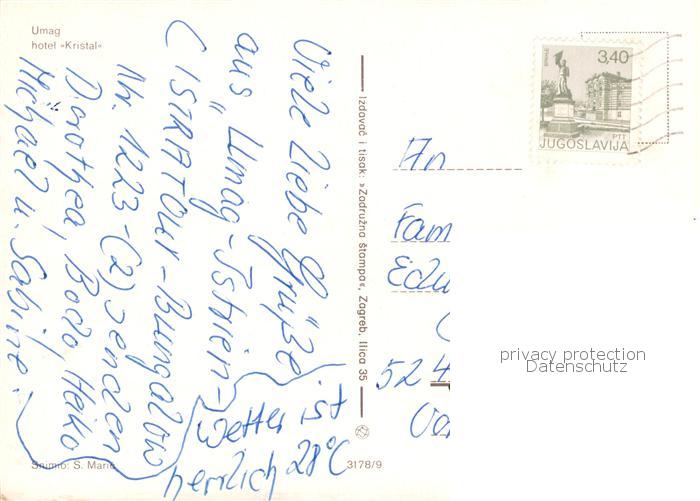 Umag
hotel »Kristal«
Viele liebe Grüße
aus „Umag-Istrien-
(ISTRATOUR-Bungalow
Nr. 1223-(2) senden
Dorothea, Bodo, Heiko
Michael u. Sabine.
Wetter ist
herrlich 28°C
Snimio: S. Marić
3178/9
Izdavač i tisak: »Zadružna štampa«, Zagreb, Ilica 35
3,40
PTT
JUGOSLAVIJA
An
Fam
Edu
524
privacy protection
Datenschutz